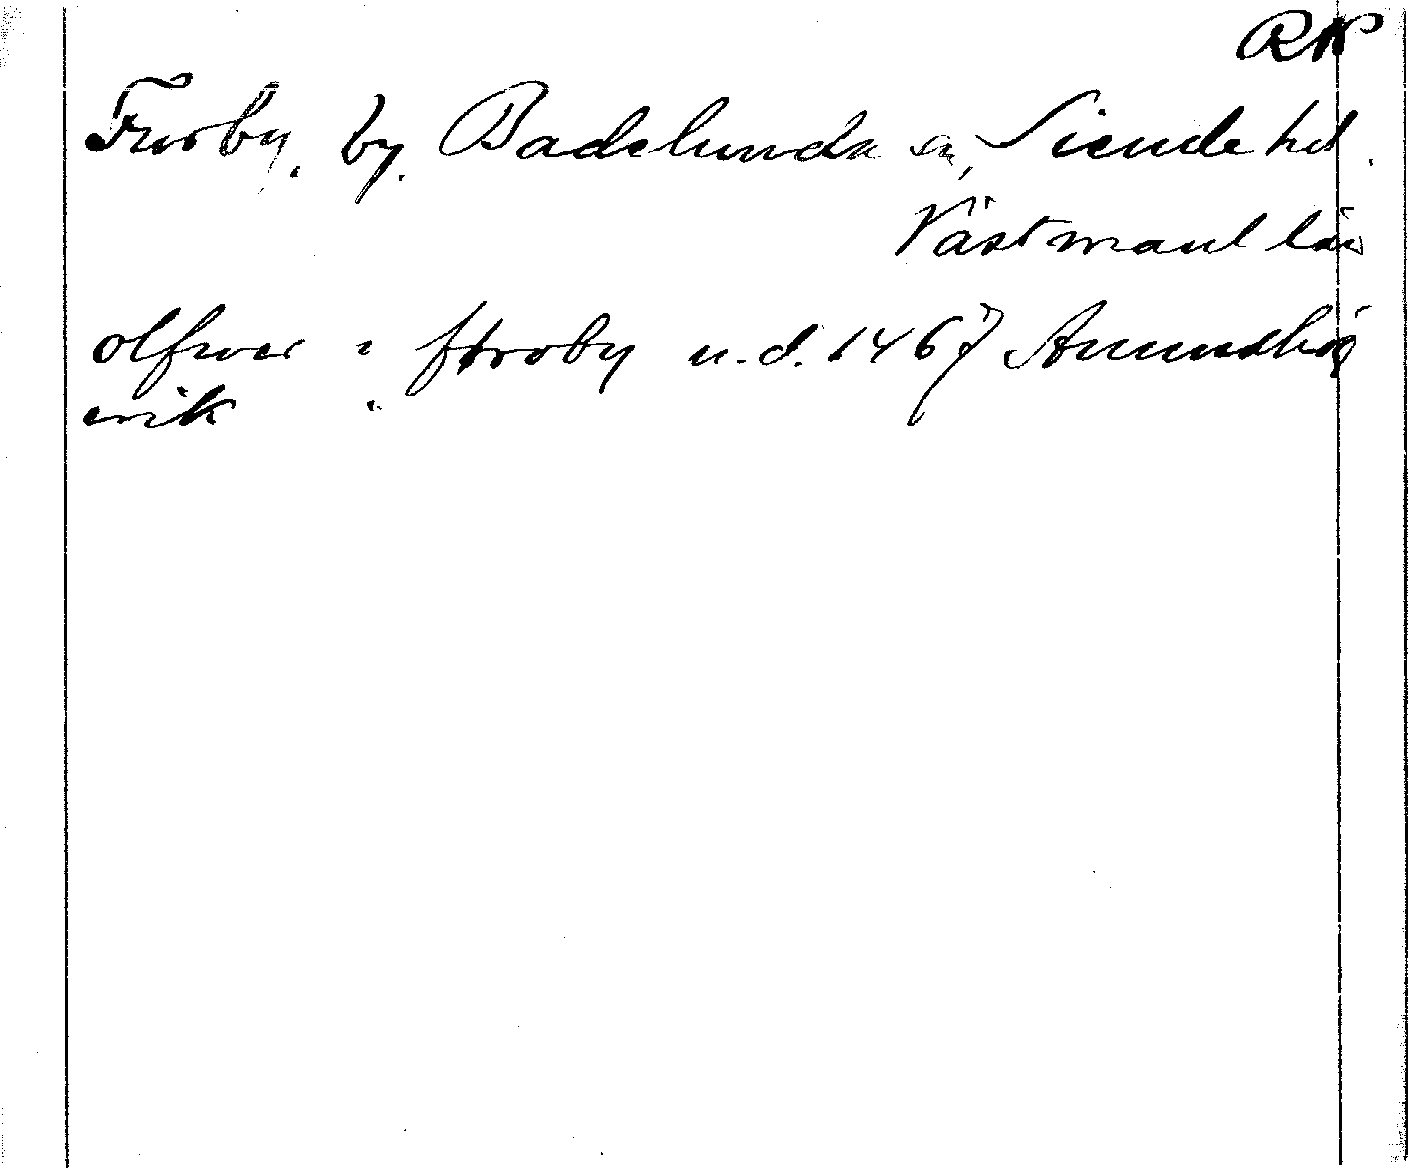 RA
Furby. by. Badelunda sn, Siende hd.
Västmanl län
olfwer i ffwrby u.d. 1467 Anundhög
erik "